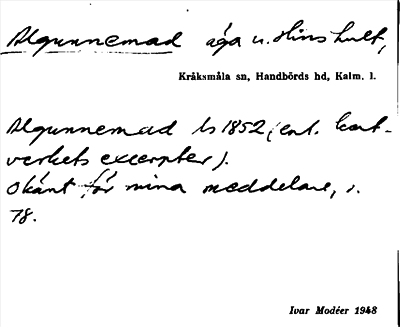 Algunnemad äga u. Hinshult,
Kråksmåla sn, Handbörds hd, Kalm. l.
Algunnemad ls 1852 (enl. kart-
verkets excerpter).
Okänt för mina meddelare, s.
78.
Ivar Modéer 1948